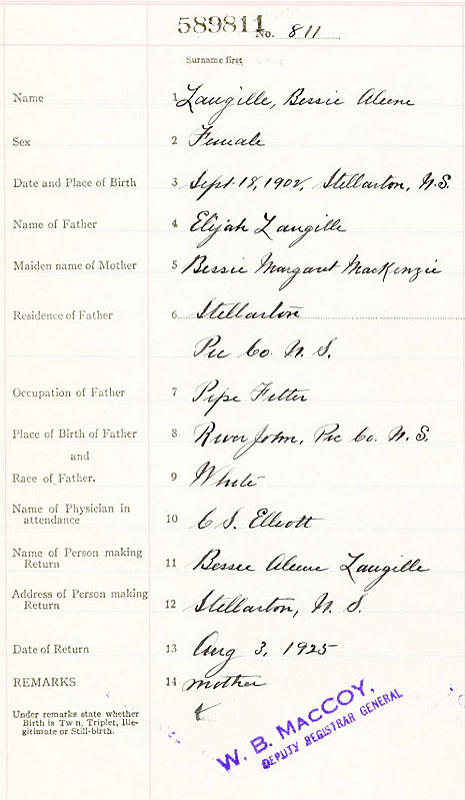 589811 No. 811
Surname first
Name 1 Langille, Bessie Aleene
Sex 2 Female
Date and Place of Birth 3 Sept. 18, 1902, Stellarton, N.S.
Name of Father 4 Elijah Langille
Maiden name of Mother 5 Bessie Margaret MacKenzie
Residence of Father 6 Stellarton
Pic Co. N. S.
Occupation of Father 7 Pipe Fitter
Place of Birth of Father 8 River John, Pic Co. N. S.
and
Race of Father. 9 White
Name of Physician in
attendance 10 C S. Elliott
Name of Person making
Return 11 Bessie Aleene Langille
Address of Person making
Return 12 Stellarton, N. S.
Date of Return 13 Aug 3, 1925
REMARKS 14 mother
Under remarks state whether
Birth is Tw n, Triplet, Ille-
gitimate or Still-birth.
W. B. MACCOY,
DEPUTY REGISTRAR GENERAL